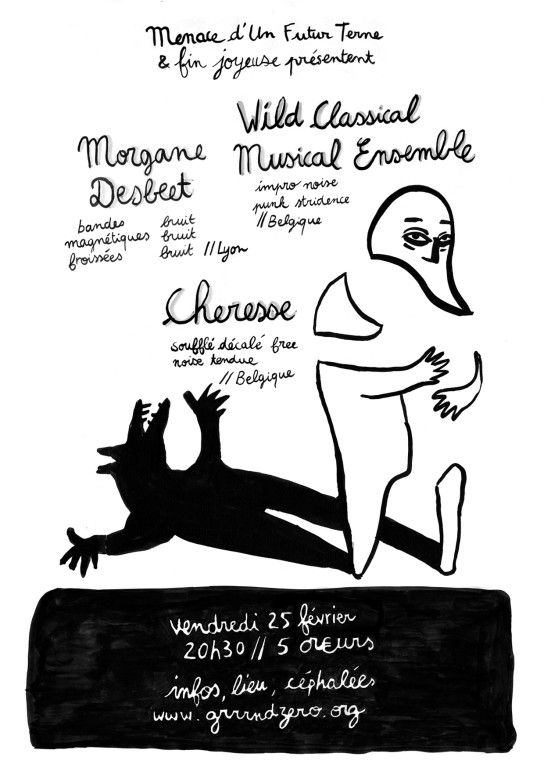 Menace d'Un Futur Terne
& fin joyeuse présentent
Wild Classical
Musical Ensemble
impro noise
punk stridence
// Belgique
Morgane
Desbeet
bandes bruit
magnétiques bruit
froissées bruit // Lyon
Cheresse
soufflé décalé free
noise tendue
// Belgique
vendredi 25 février
20h30 // 5 œurs
infos, lieu, céphalées
www.grrrndzero.org